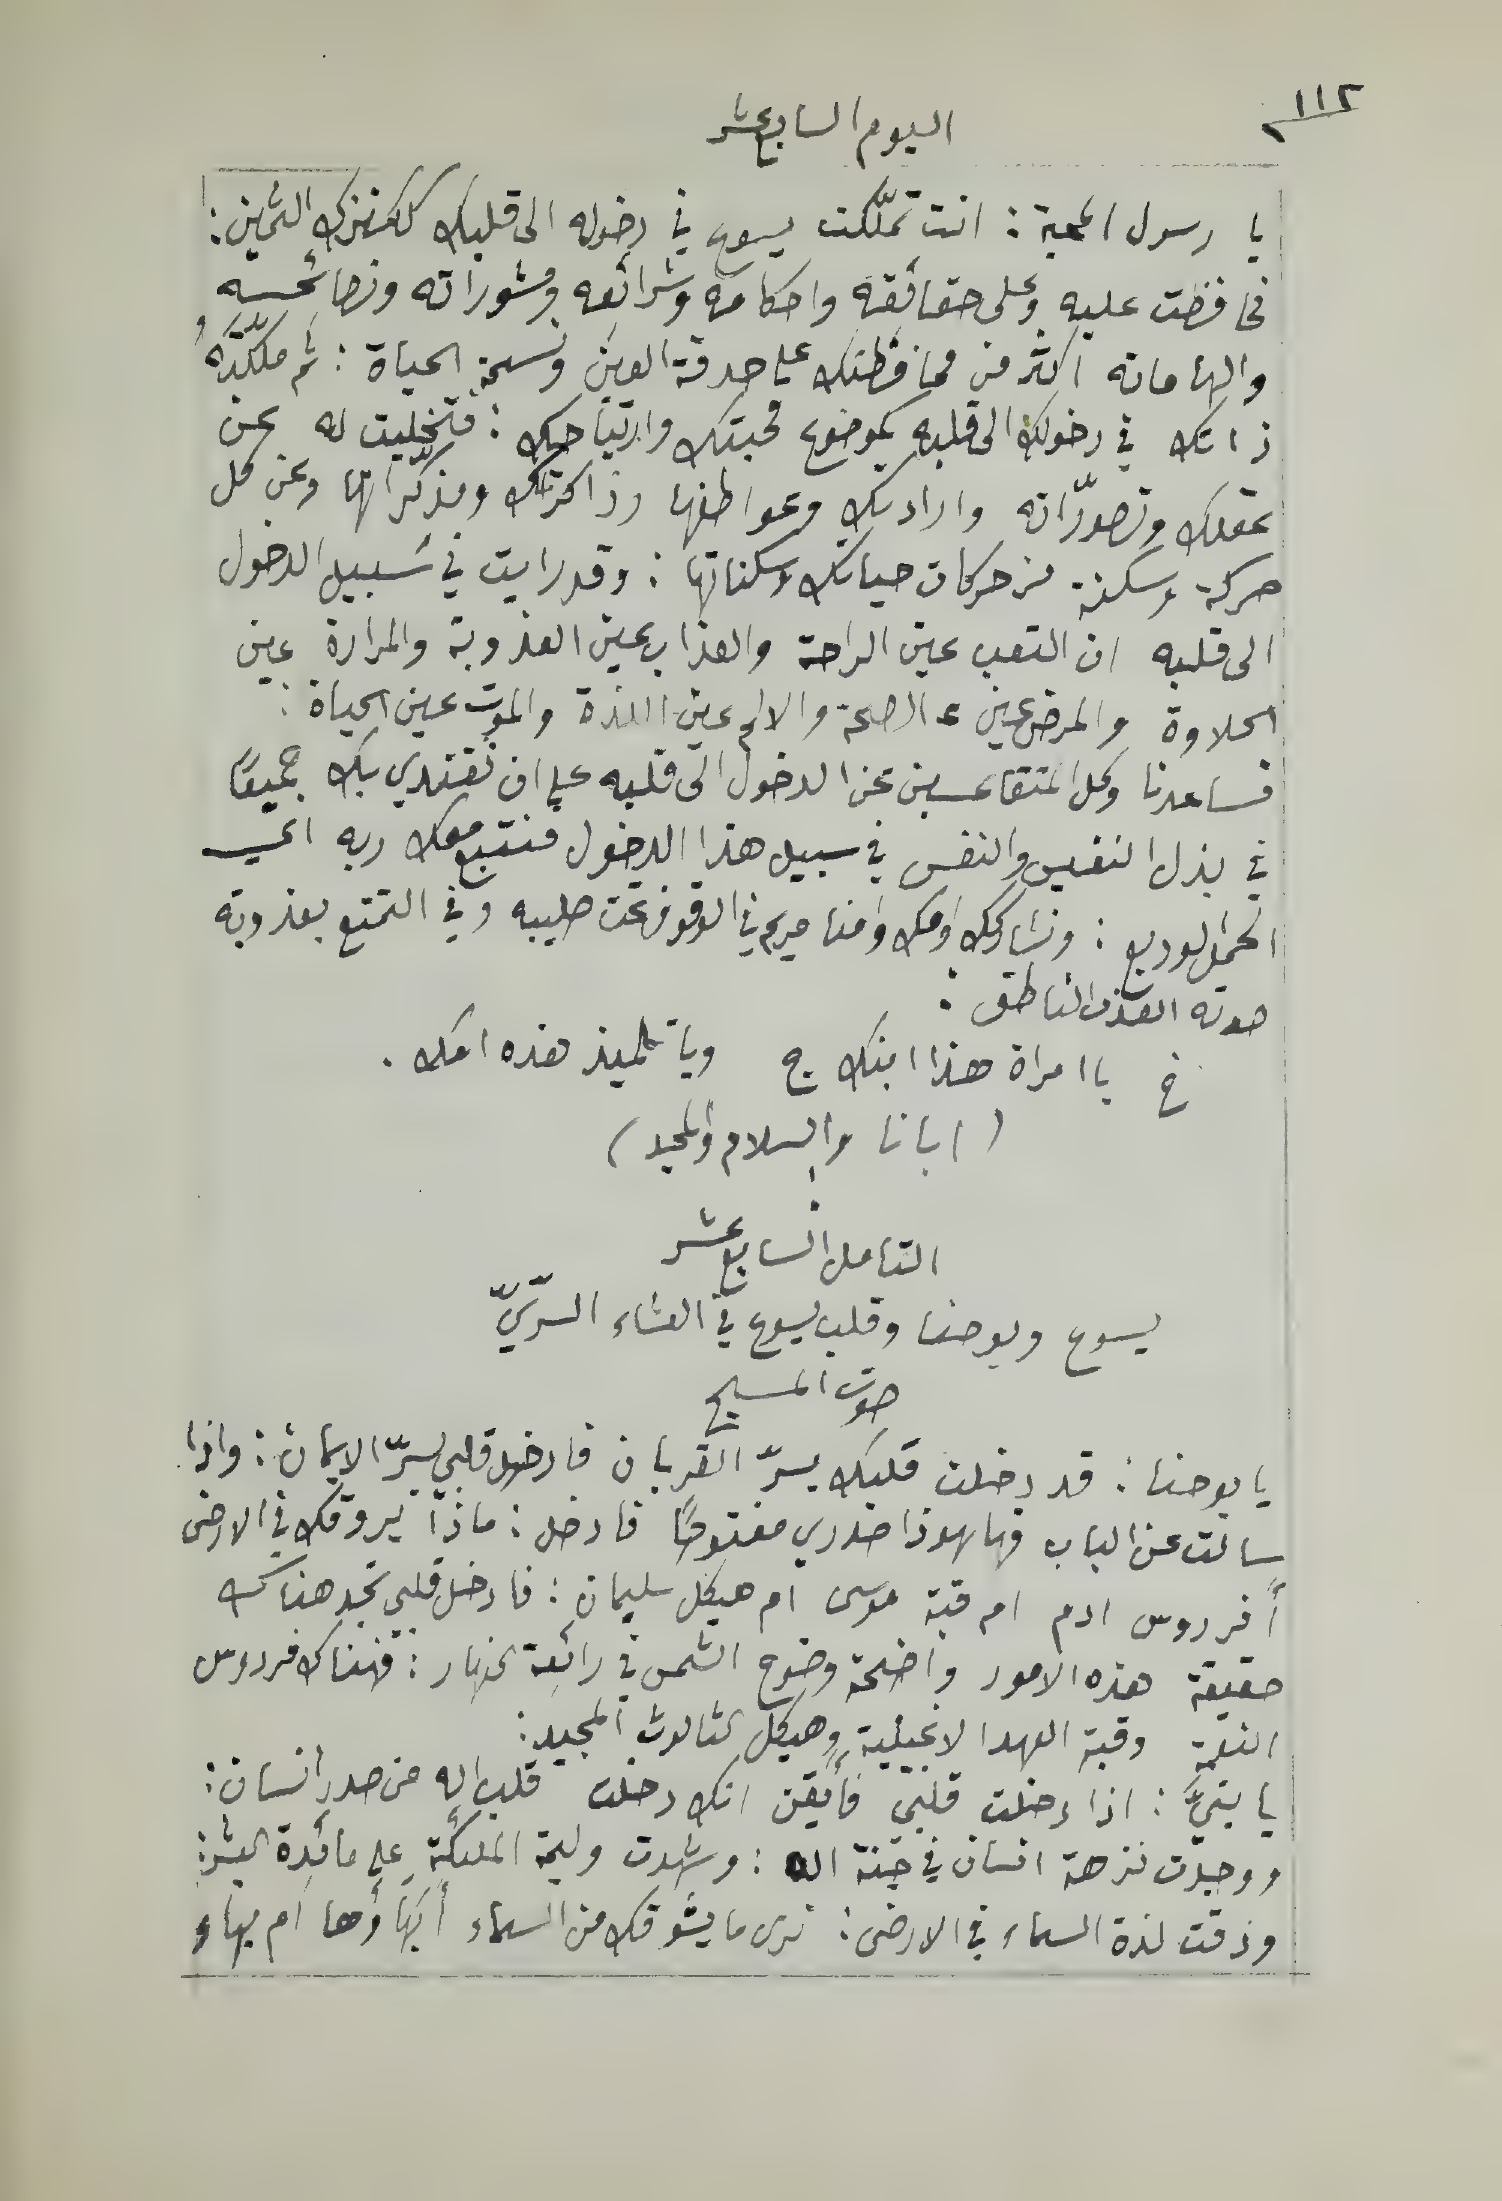 ١١٢
اليوم السابع عشر
يا رسول المحبة : انت تملّكت يسوع في دخوله الى قلبك ككنزك الثمين :
فحافظت عليه وعلى حقائقه واحكامه وشرائعه ومشوراته ونصائحه
والهاماته اكثر من محافظتك على حدقة العين ونسمة الحياة : ثم ملّكتَهُ
ذاتك في دخولك الى قلبه كموضوع محبتك وارتياحك : فتخليت له عن
عقلك وتصوّراته وارادتك وعواطفها وذاكرتك ومذكّراتها وعن كل
حركة وسكنة من حركات حياتك وسكناتها : وقد رايت في سَبيل الدخول
الى قلبه ان التعب عين الراحة والعذاب عين العذوبة والمرارة عين
الحلاوة والمرض عين الصحة والالم عين اللذة والموت عين الحياة :
فساعدنا وكل المتقاعسين عن الدخول الى قلبه على ان نقتدي بك جميعًا
في بذل النفيس والنفس في سبيل هذا الدخول فنتبع معك ربه الحي
الحمل الوديع : ونشاركك وامك وامنا مريم في الوقوف تحت صليبه وفي التمتع بعذوبة
صوته العذب الناطق :
خ يا امراة هذا ابنك ج ويا تلميذ هذه امك .
( ابانا والسلام والمجد )
التامل السابع عشر
يسوع ويوحنا وقلب يسوع في العشاء السرّيّ
صوت المسيح
يا يوحنا : قد دخلت قلبك بسرّ القربان فادخل قلبي بسرّ الايمان : واذا
سالت عن الباب فها هوذا صدري مفتوحًا فادخل : ماذا يروقك في الارض
أفردوس ادم ام قبة موسى ام هيكل سليمان : فادخل قلبي تجد هناك
حقيقة هذه الامور واضحة وضوح الشمس في رائعة النهار : فهناك فردوس
النعمة وقبة العهد الانجيلية وهيكل الثالوث المجيد :
يا بنيَّ : اذا دخلت قلبي فأيقن انك دخلت قلب اله من صدر انسان :
ووجدت نزهة انسان في جنة اله : وشهدت وليمة الملئكة على مائدة البشر :
وذقت لذة السماء في الارض : ترى ما يشوقك من السماء أبهاؤها ام بهاء